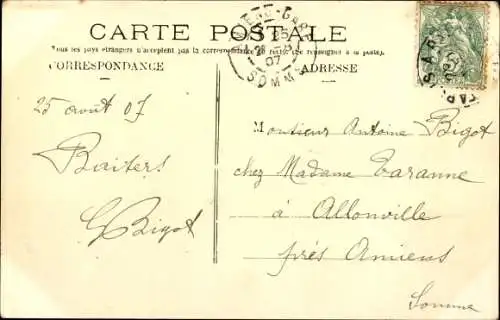 CARTE POSTALE
Tous les pays étrangers n'acceptent pas la correspondance au recto (se renseigner à la poste).
CORRESPONDANCE
ADRESSE
25 août 07
Baisers
G Bigot
Monsieur Antoine Bigot
chez Madame Taranne
à Allonville
près Amiens
Somme
25
07
SOMME